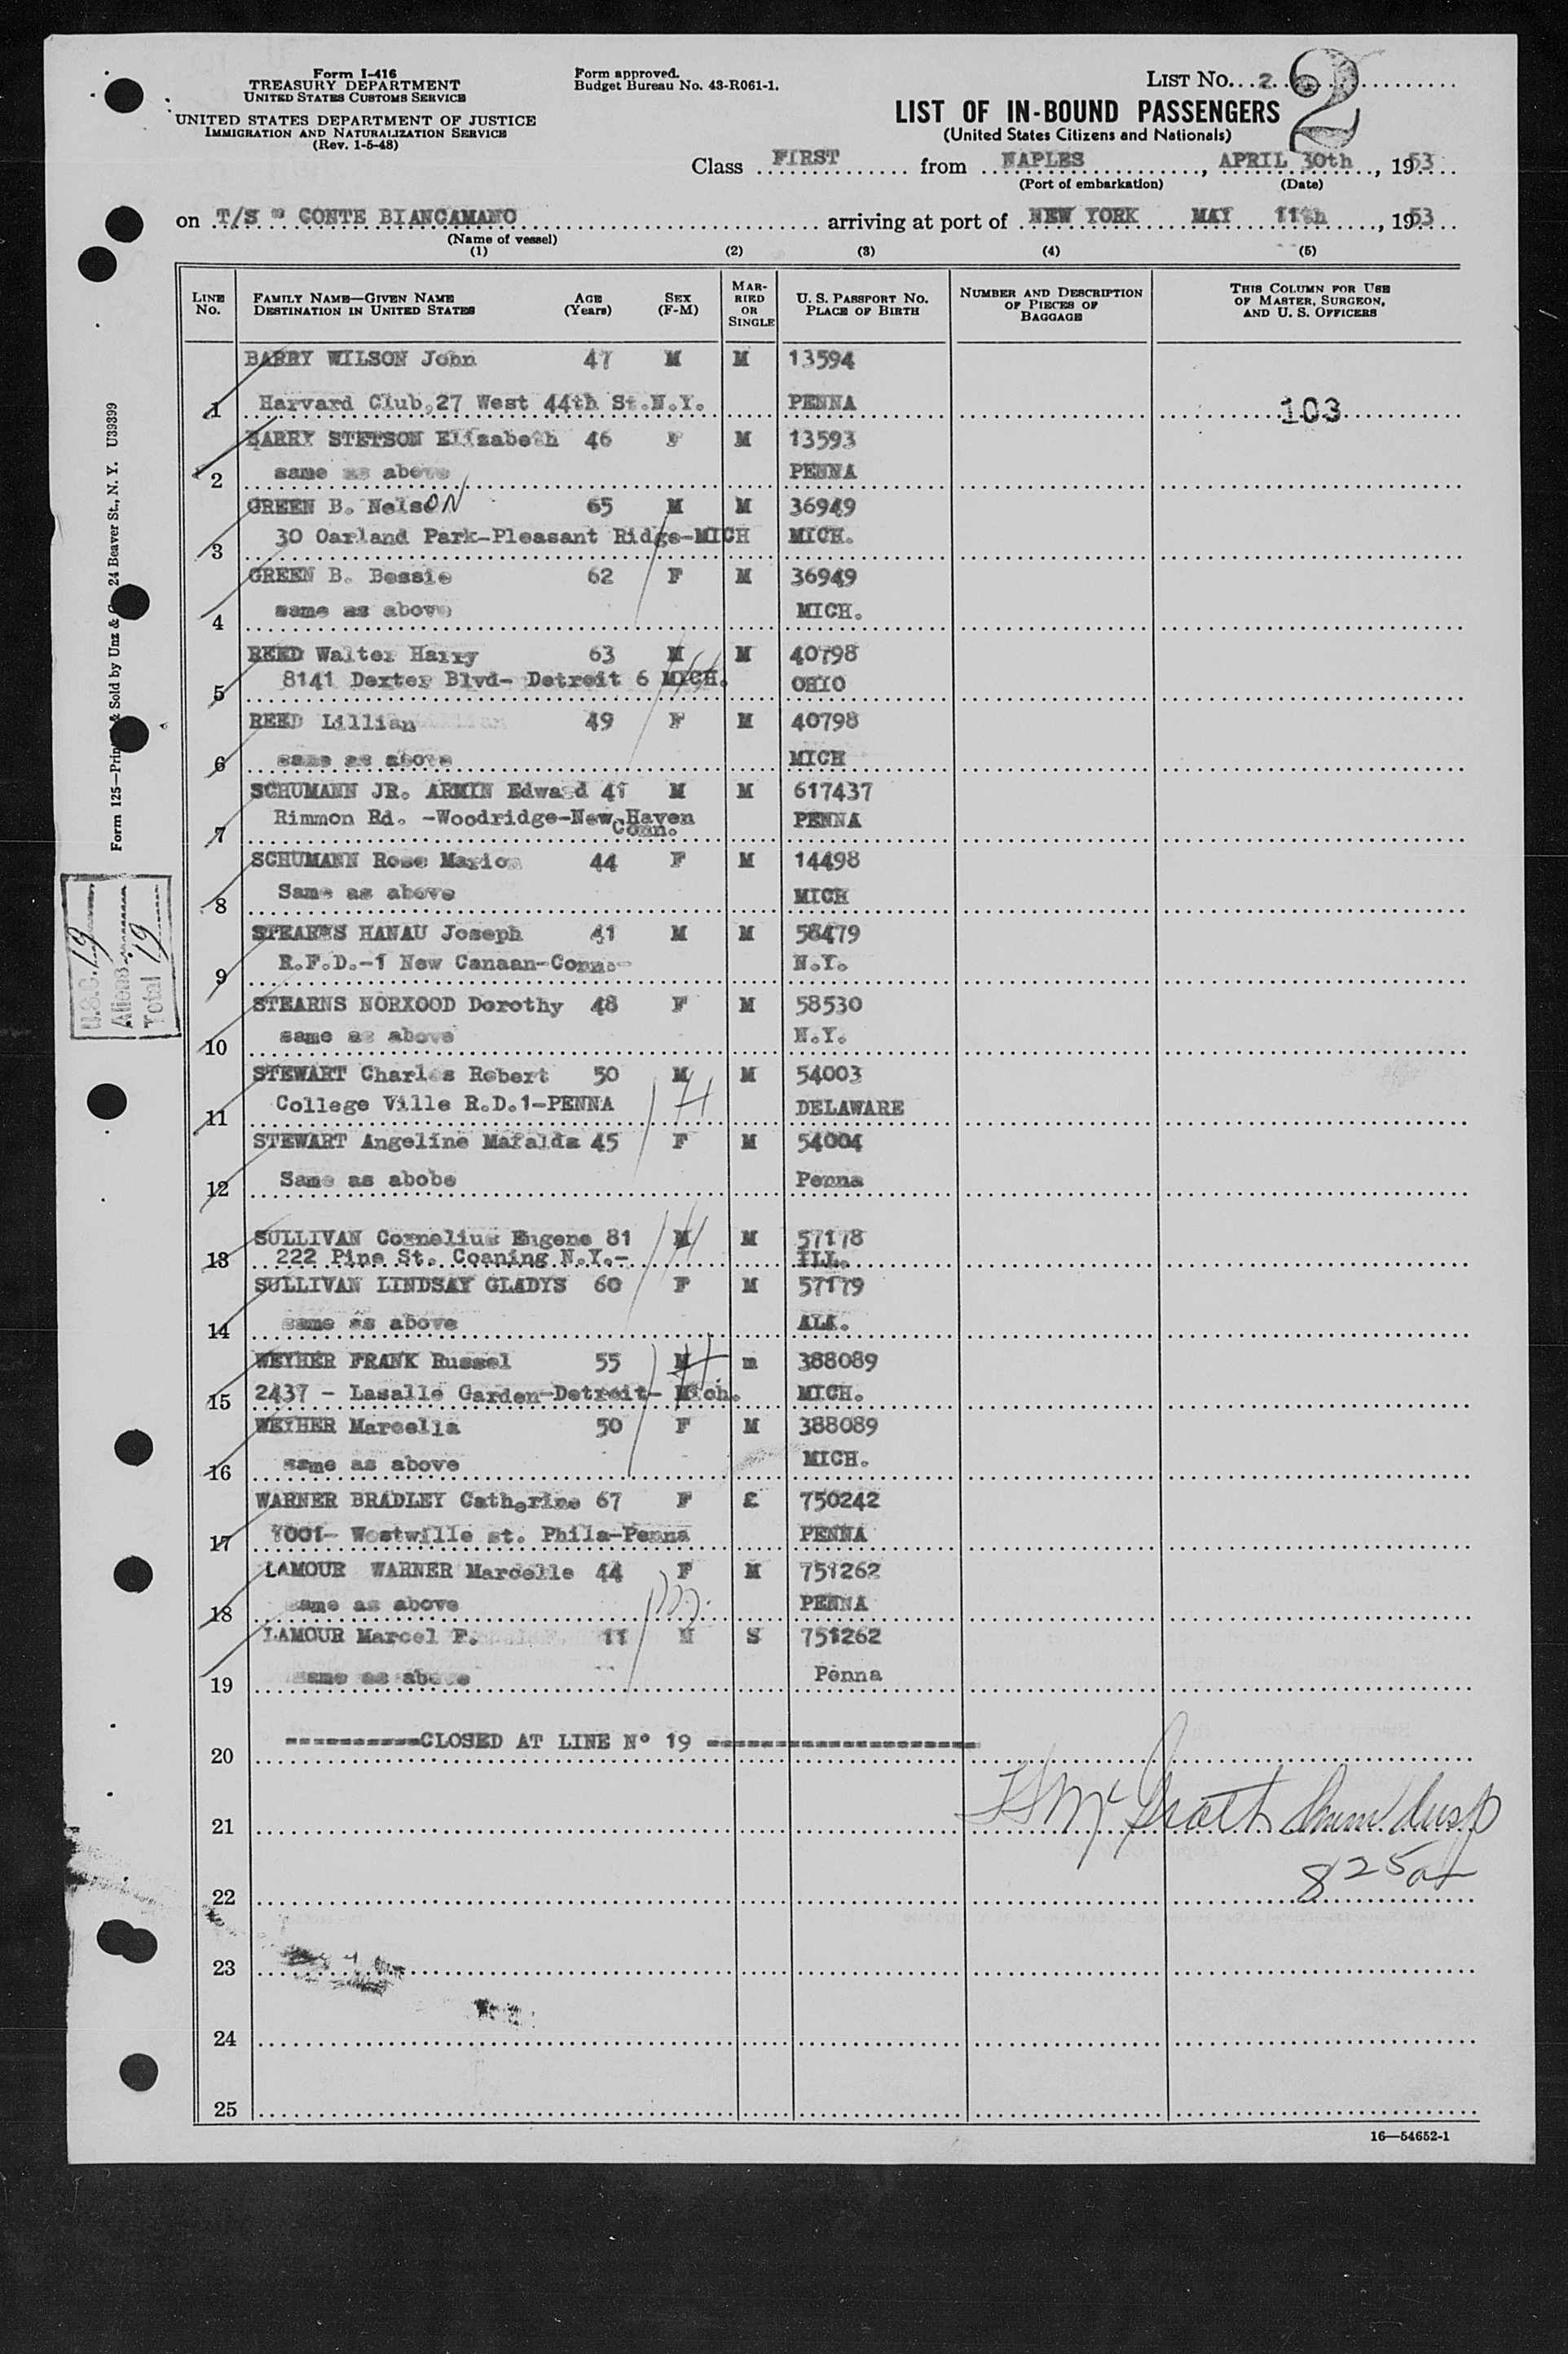 Form I-416
TREASURY DEPARTMENT
UNITED STATES CUSTOMS SERVICE
UNITED STATES DEPARTMENT OF JUSTICE
IMMIGRATION AND NATURALIZATION SERVICE
(Rev. 1-5-48)
Form approved.
Budget Bureau No. 43-R061-1.
LIST NO. 2 2
LIST OF IN-BOUND PASSENGERS
(United States Citizens and Nationals)
Class FIRST from NAPLES, APRIL 30th, 1953
(Port of embarkation) (Date)
on T/S " CONTE BIANCAMANO arriving at port of NEW YORK MAY 11th, 1953
(Name of vessel)
(1) (2) (3) (4) (5)
LINE NO. FAMILY NAME—GIVEN NAME DESTINATION IN UNITED STATES AGE (Years) SEX (F-M) MARRIED OR SINGLE U. S. PASSPORT NO. PLACE OF BIRTH NUMBER AND DESCRIPTION OF PIECES OF BAGGAGE THIS COLUMN FOR USE OF MASTER, SURGEON, AND U. S. OFFICERS
BARRY WILSON John 47 M M 13594
1 Harvard Club,27 West 44th St.N.Y. PENNA 103
BARRY STETSON Elizabeth 46 F M 13593
2 same as above PENNA
GREEN B. NelsON 65 M M 36949
3 30 Oarland Park-Pleasant Ridge-MICH MICH.
GREEN B. Bessie 62 F M 36949
4 same as above MICH.
REED Walter Harry 63 M M 40798
5 8141 Dexter Blvd- Detroit 6 MICH. OHIO
REED Lillian 49 F M 40798
6 same as above MICH
SCHUMANN JR. ARMIN Edward 41 M M 617437
7 Rimmon Rd. -Woodridge-New Haven Conn. PENNA
SCHUMANN Rose Marion 44 F M 14498
8 Same as above MICH
STEARNS HANAU Joseph 41 M M 58479
9 R.F.D.-1 New Canaan-Conn.- N.Y.
STEARNS NORXOOD Dorothy 48 F M 58530
10 same as above N.Y.
STEWART Charles Robert 50 M M 54003
11 College Ville R.D.1-PENNA H DELAWARE
STEWART Angeline Mafalda 45 F M 54004
12 Same as abobe Penna
SULLIVAN Cornelius Eugene 81 M M 57178
13 222 Pine St. Coaning N.Y.- H ILL.
SULLIVAN LINDSAY GLADYS 60 F M 57179
14 same as above ALA.
WEYHER FRANK Russel 55 M m 388089
15 2437 - Lasalle Garden-Detroit- Mich. H MICH.
WEYHER Marcella 50 F M 388089
16 same as above MICH.
WARNER BRADLEY Catherine 67 F £ 750242
17 7001- Westwille st. Phila-Penna PENNA
LAMOUR WARNER Marcelle 44 F M 751262
18 same as above PENNA
LAMOUR Marcel F. 11 M S 751262
19 same as above Penna
20 -----------CLOSED AT LINE Nº 19 --------------------
21
8 25 a
22
23
24
25
16—54652-1
Form 125—Printed & Sold by Unz & Co., 24 Beaver St., N. Y. U39399
U.S.C. 19
Aliens
Total 19